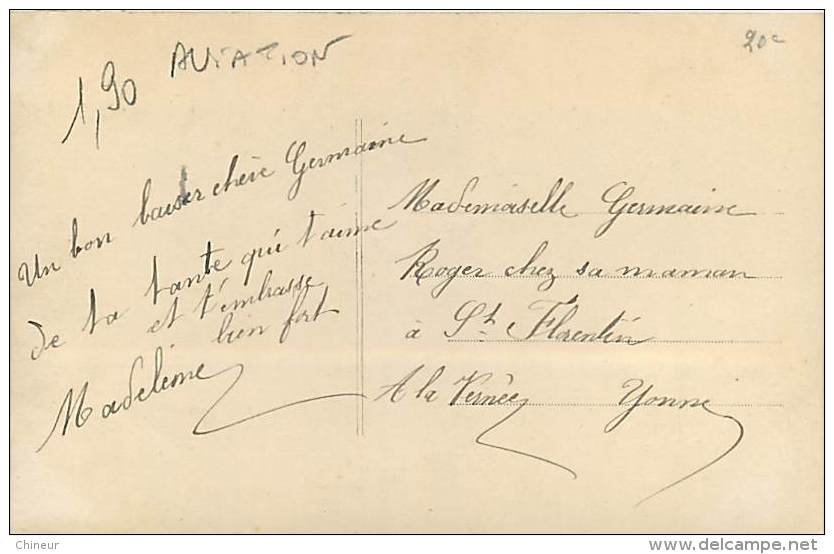 1,90 AVIATION
20c
Un bon baiser chère Germaine
de ta tante qui t'aime
et t'embrasse
bien fort
Madeleine
Mademoiselle Germaine
Roger chez sa maman
à St Florentin
A la Vernée Yonne
Chineur
delcampe.net